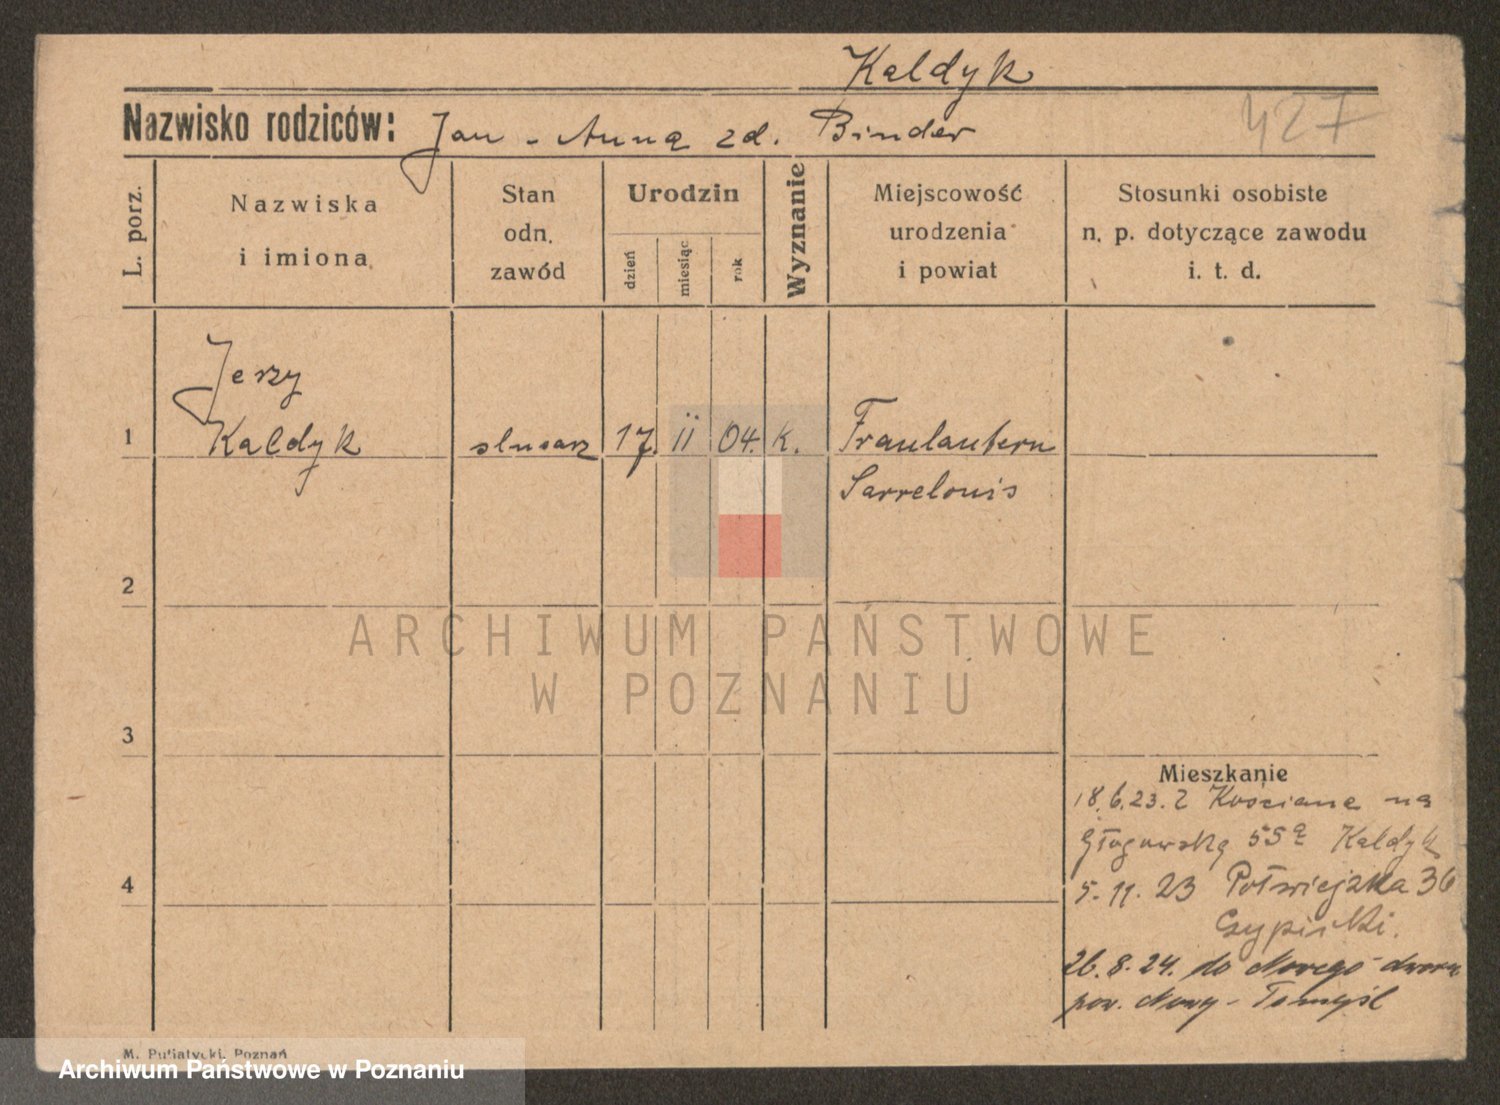 Kaldyk
Nazwisko rodziców: Jan - Anna zd. Binder
427
L. porz.
Nazwiska
i imiona
Stan
odn.
zawód
Urodzin
dzień
miesiąc
rok
Wyznanie
Miejscowość
urodzenia
i powiat
Stosunki osobiste
n. p. dotyczące zawodu
i. t. d.
Jerzy
1 Kaldyk ślusarz 17. II 04. k. Fraulautern
Sarrelouis
2
ARCHIWUM PAŃSTWOWE
W POZNANIU
3
Mieszkanie
18.6.23. z Kościana na
Głogowską 55a Kaldyk
4
5.11.23 Półwiejska 36
26.8.24. do Nowego dworu
pow. Nowy-Tomyśl
M. Putiatycki, Poznań
Archiwum Państwowe w Poznaniu